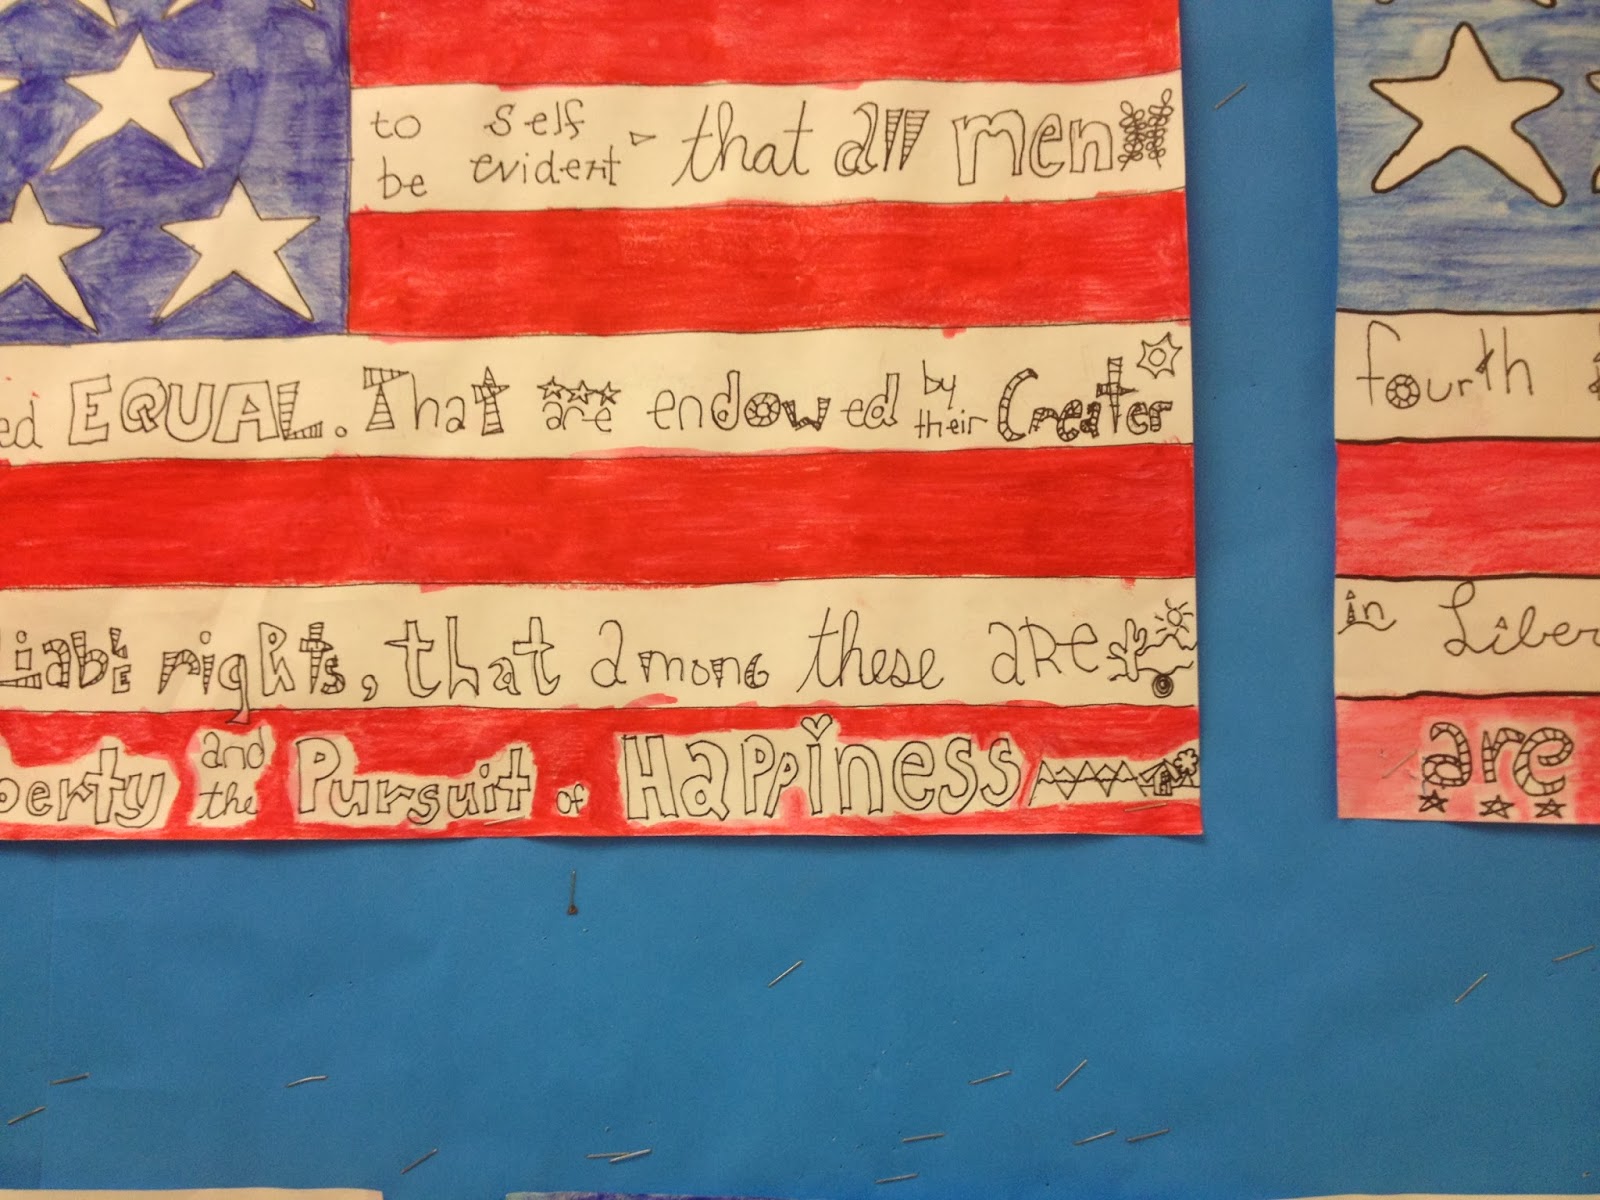 to be self evident - that all men
ed EQUAL. That are endowed by their Creater
liable rights, that among these are
berty and the Pursuit of Happiness
fourth
in Liber
are